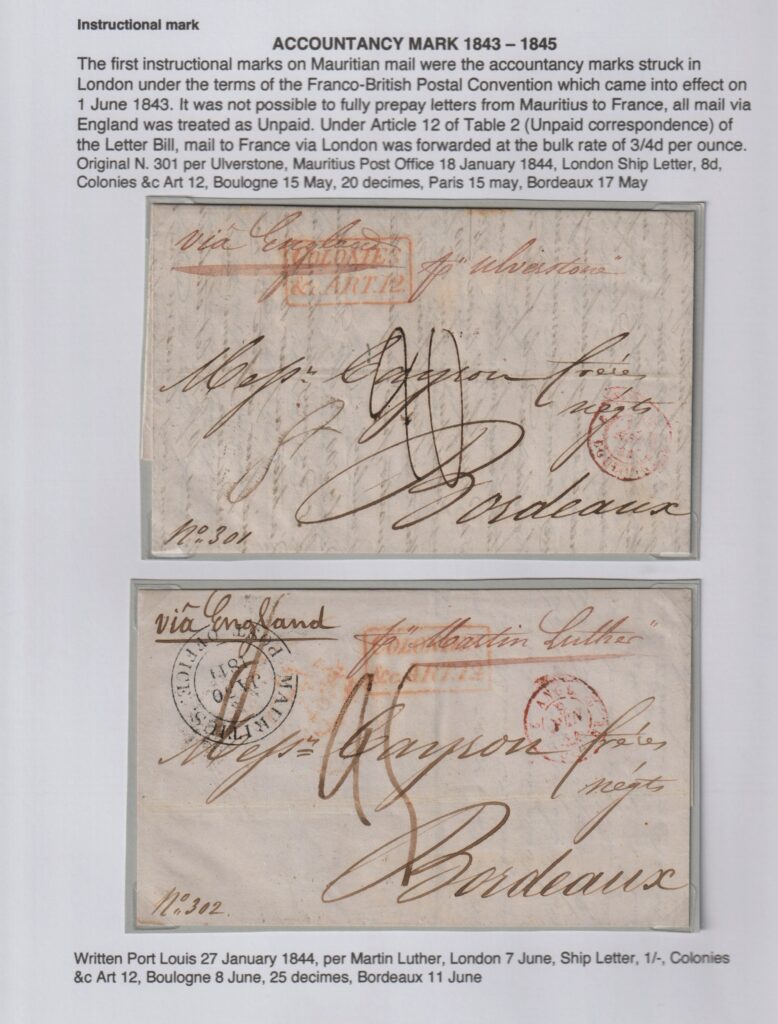 Instructional mark
ACCOUNTANCY MARK 1843 – 1845
The first instructional marks on Mauritian mail were the accountancy marks struck in
London under the terms of the Franco-British Postal Convention which came into effect on
1 June 1843. It was not possible to fully prepay letters from Mauritius to France, all mail via
England was treated as Unpaid. Under Article 12 of Table 2 (Unpaid correspondence) of
the Letter Bill, mail to France via London was forwarded at the bulk rate of 3/4d per ounce.
Original N. 301 per Ulverstone, Mauritius Post Office 18 January 1844, London Ship Letter, 8d,
Colonies &c Art 12, Boulogne 15 May, 20 decimes, Paris 15 may, Bordeaux 17 May
viâ England
COLONIES
&c. ART. 12
pr "Ulverstone"
Messrs Cayrou frères
négts
20
8
Bordeaux
No. 301
viâ England
pr "Martin Luther"
COLONIES
&c. ART. 12
MAURITIUS POST OFFICE
Messrs Cayrou frères
négts
25
Bordeaux
No. 302.
Written Port Louis 27 January 1844, per Martin Luther, London 7 June, Ship Letter, 1/-, Colonies
&c Art 12, Boulogne 8 June, 25 decimes, Bordeaux 11 June